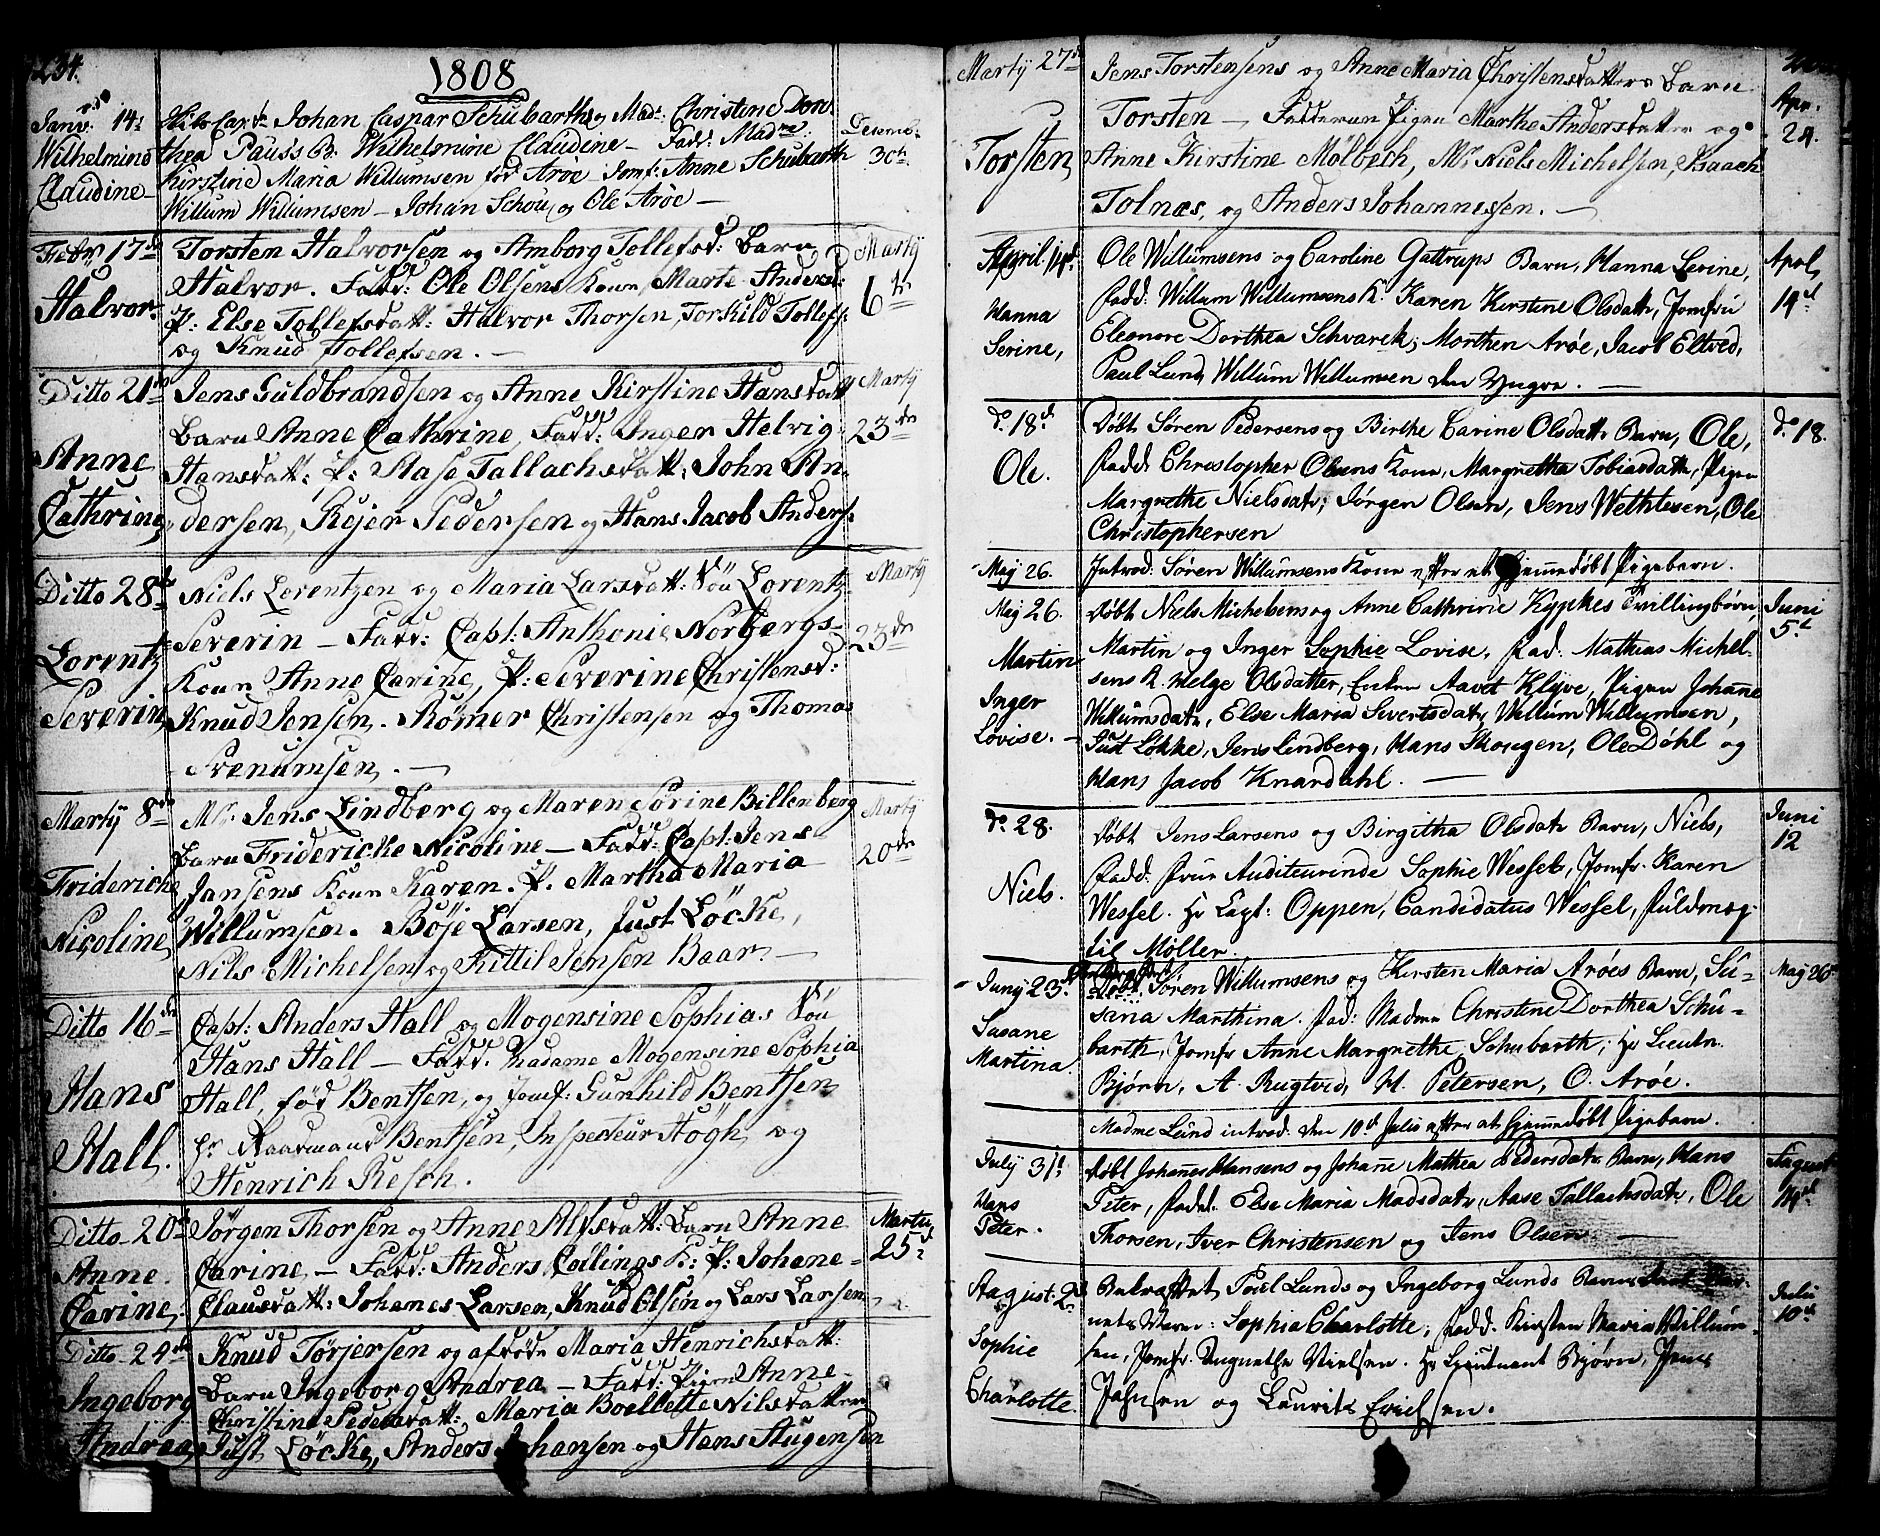 234.
1808
Janv: 14:
Wilhelmine
Claudine
Johan Caspar Schubarth og Mad: Christine Doro-
thea Pauss B: Wilhelmine Claudine — Fadr: Madme:
Kirstine Maria Willumsen fød Arøe Jomf: Anne Schubarth
Willum Willumsen — Johan Schou og Ole Arøe —
Decemb:
30te
Febr: 17de
Halvor
Torsten Halvorsen og Amborg Tollefsd: Barn
Halvor. Fadd: Ole Olsens Kone, Marte Andersd:
P: Else Tollefsdatt: Halvor Thorsen, Torkild Tollefs:
og Knud Tollefsen. —
Martij
6te
Ditto 21de
Anne
Cathrine
Jens Guldbrandsen og Anne Kirstine Hansdatt
Barn Anne Cathrine, Fadd: Inger Helvig
Hansdatt: P: Aase Tallachsdatt: John An-
dersen, Rejer Pedersen og Hans Jacob Anders:
Martij
23de
Ditto 28de
Lorentz
Severin
Niels Lorentzen og Maria Larsdatt: Søn Lorentz
Severin — Fadd: Capt: Anthonie Norbergs
Kone Anne Carine, P: Severine Christensd:
Knud Jensen. Rømer Christensen og Thomas
Svenumsen. —
Martij
23de
Martij 8de
Fridericke
Nicoline
Mr. Jens Lindberg og Maren Sørine Billenberg
Barn Fridericke Nicoline — Fadd: Capt: Jens
Jansens Kone Karen. P. Martha Maria
Willumsen. Bøje Larsen, Just Løcke,
Nils Michelsen og Kittil Jensen Baar —
Martij
20de
Ditto 16de
Hans
Hall.
Capt: Anders Hall og Mogensine Sophias Søn
Hans Hall — Fadd: Madame Mogensine Sophia
Hall, fød Bentsen, og Jomf: Gunhild Bentsen
Hr Raadmand Bentsen, Inspecteur Høgh og
Henrich Resch.
Ditto 20de
Anne
Carine
Jørgen Thorsen og Anne Alfsdatt: Barn Anne
Carine — Fadd: Anders Collings K: P: Johane
Clausdatt: Johanes Larsen, Knud Olsen og Lars Larsen
Martij
25:
Ditto 24de
Ingeborg
Andrea
Knud Tørjersen og afdøde Maria Henrichsdatt:
Barn Ingeborg Andrea — Fadd: Pigen Anne
Christine Pedersdatt: Maria Boellette Nilsdatter
Just Løcke, Anders Johansen og Hans Haugensen
Martij 27de
Torsten
Jens Torstensens og Anne Maria Christensdatters Barn
Torsten — Fadderne Pigen Marthe Andersdatter og
Anne Kirstine Mølbech, Mr Niels Michelsen, Isaach
Tolnæs, og Anders Johannesen. —
Apr.
24.
April 14d
Hanna
Serine,
Ole Willumsens og Caroline Gattrups Barn, Hanna Serine,
Fadd: Willum Willumsens K. Karen Kirstine Olsdatr, Jomfru
Eleonore Dorthea Schvarck; Morthen Arøe, Jacob Eltved,
Paul Lund, Willum Willumsen den Yngre. —
Apr.
14d
do. 18d
Ole.
Døbt Søren Pedersens og Birthe Carine Olsdatr Barn, Ole,
Fadd. Christopher Olsens Kone, Margretha Tobiasdatr, Pigen
Margrethe Nielsdatr; Jørgen Olsen, Jens Wethlesen, Ole
Christophersen
do. 18.
Maj 26.
Introd: Søren Willumsens Kone efter et hjemmedøbt Pigebarn.
Maj 26.
Martin
Inger
Lovise. —
Døbt Niels Michelsens og Anne Cathrine Kypkes Tvillingbørn,
Martin og Inger Sophie Lovise. Fad. Mathias Michel-
sens K. Helge Olsdatter, Enken Aavet Klyve, Pigen Johanne
Willumsdatr, Else Maria Sivertsdatr, Willum Willumsen,
Just Løkke, Jens Lindberg, Hans Skougen, Ole Døhl og
Hans Jacob Knardahl. —
Juni
5d
do. 28.
Niels.
Døbt Jens Larsens og Birgitha Olsdatr Barn, Niels,
Fadd. Frue Auditeurinde Sophie Wessel, Jomfr. Karen
Wessel. Hr Capt: Oppen, Candidatus Wessel, Fuldmæg-
til Møller.
Juni
12
Junij 23d
Susane
Martina
Søren Willumsens og Kirsten Maria Arøes Barn, Su-
sana Marthina. Fad: Madme Christine Dorthea Schu-
barth, Jomfr Anne Margrethe Schubarth; Hr Lieutn.
Bjørn, A. Rugtved, H. Petersen, O. Arøe.
Maj 26
Madme Lund introd. den 10d Julii efter et hjemmedøbt Pigebarn.
July 31d
Hans
Peter.
Døbt Johannes Hansens og Johane Mathea Pedersdatr Barn, Hans
Peter, Fadd. Else Maria Madsdatr, Aase Tallachsdatr, Ole
Thorsen, Iver Christensen og Jens Olsen —
August
14d
August: 2d
Sophie
Charlotte.
Poul Lunds og Ingeborg Lunds Barn,
Sophia Charlotte, Fadd. Kirsten Maria Willum-
sen, Jomfr. Nielsen. Hr Lieutnant Bjørn, Jens
Jahnsen og Laurits Erichsen.
Julii
10d